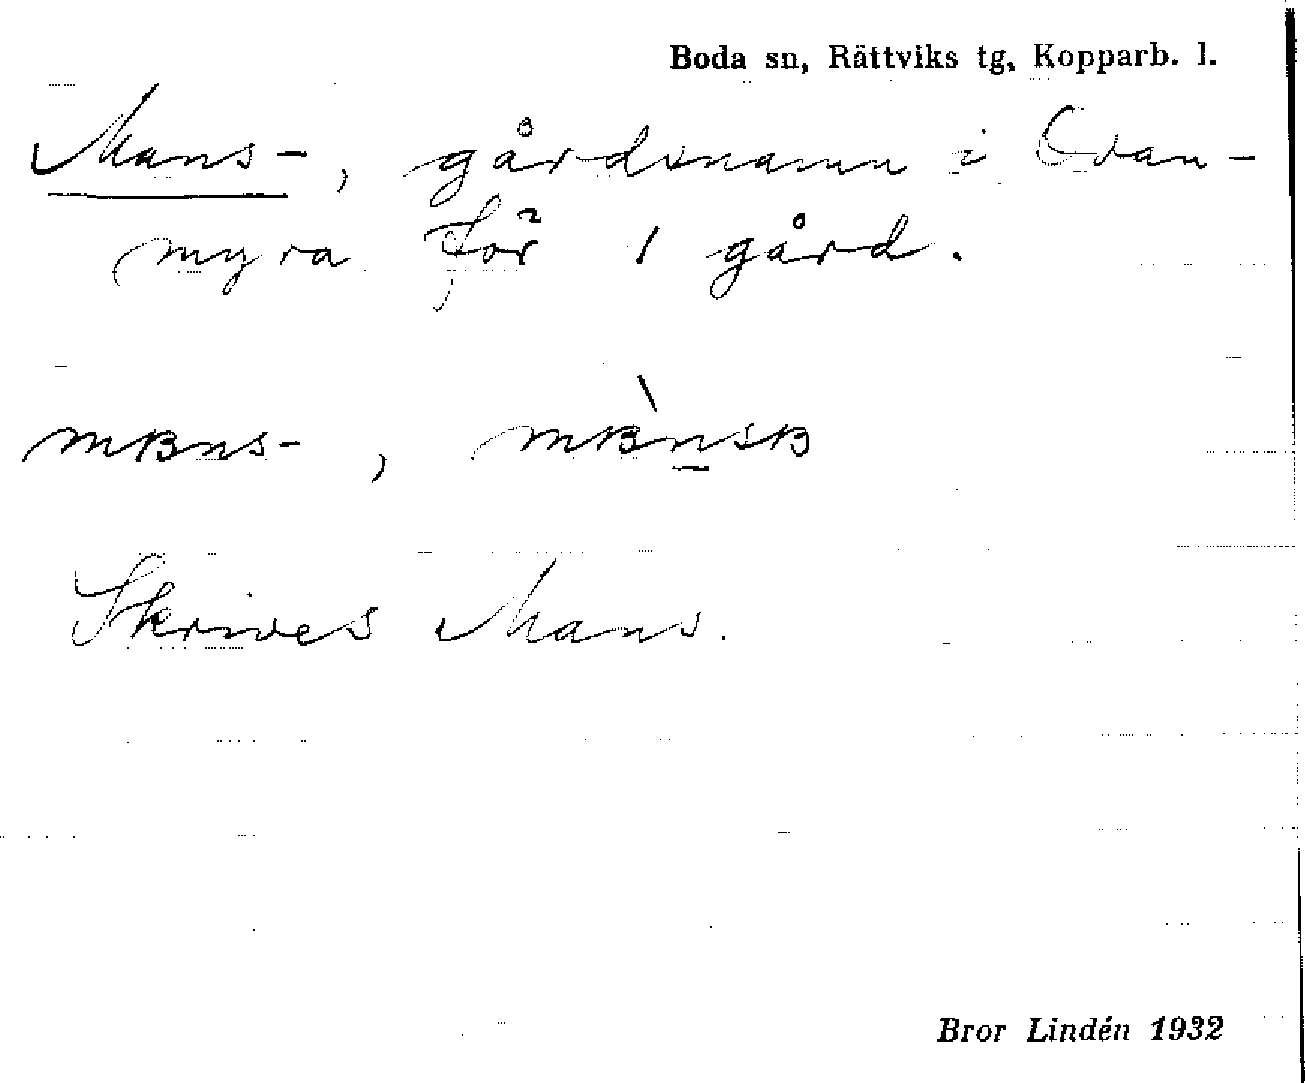 Boda sn, Rättviks tg, Kopparb. l.
Mans-, gårdsnamn i Ovan-
myra för 1 gård.
mʙns-, mʙ̀nsʙ
Skrives Mans.
Bror Lindén 1932